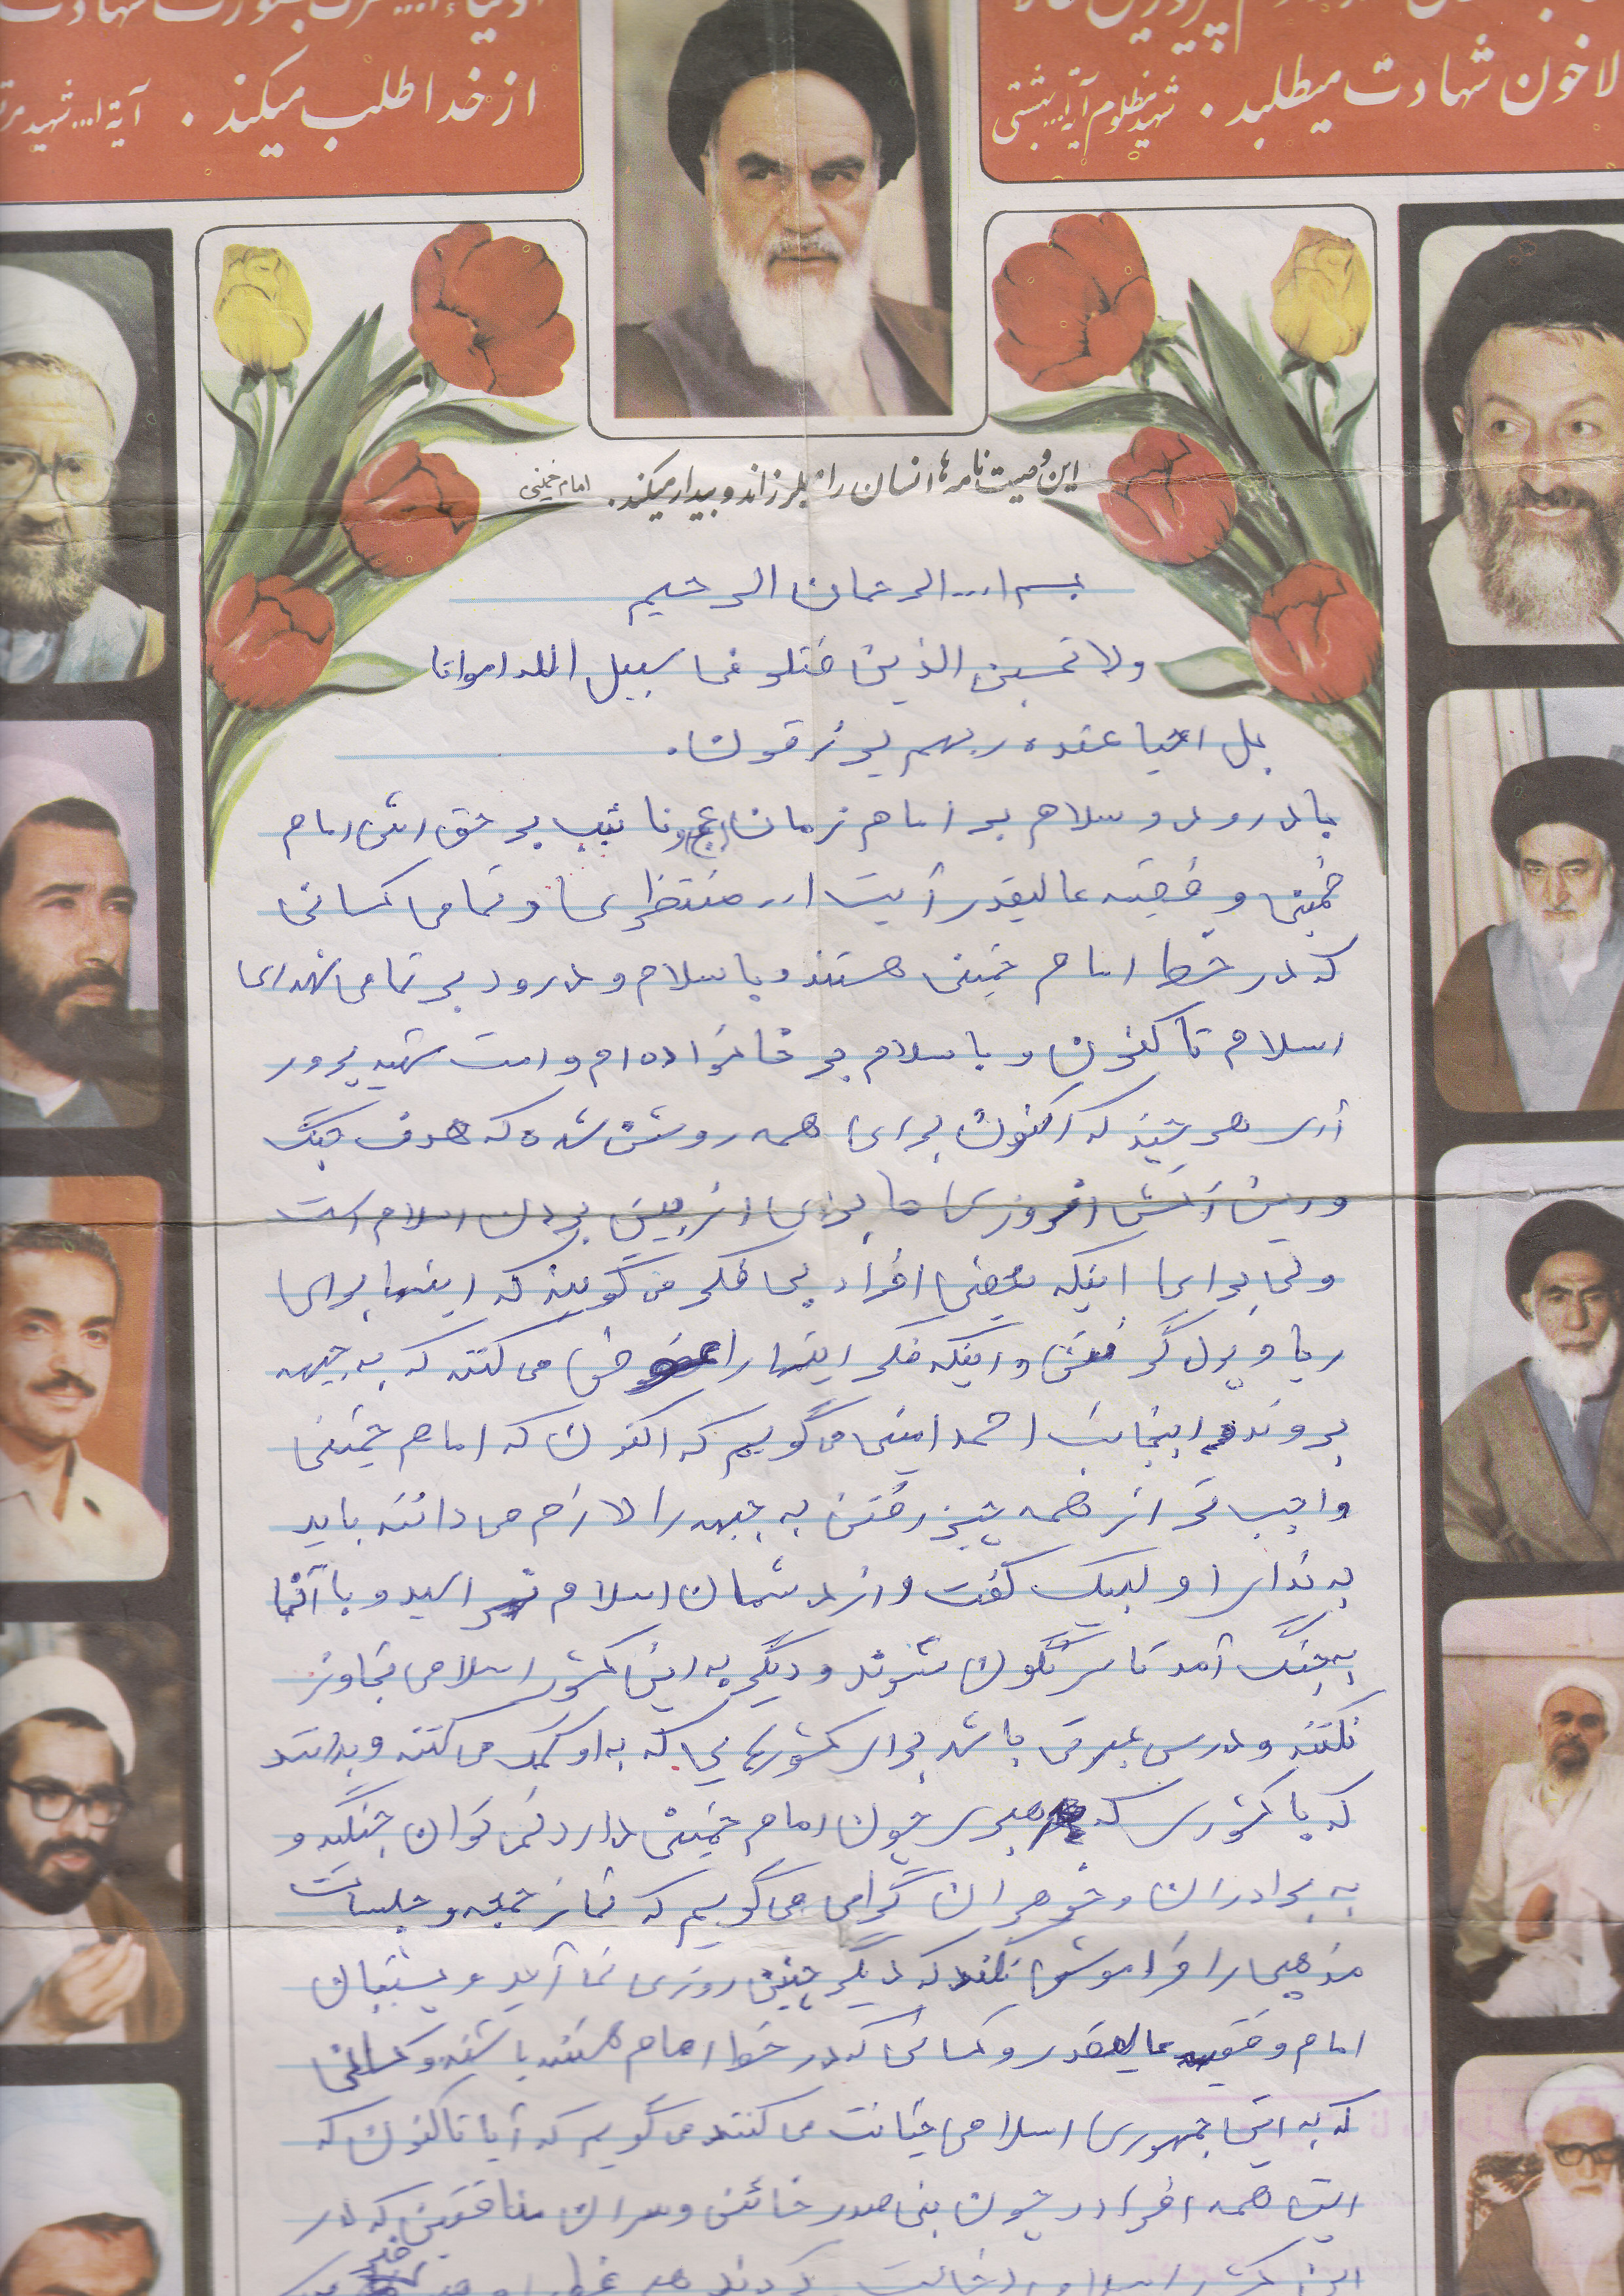 لاخون شهادت میطلبد. شهید مظلوم آیة ا... بهشتی
از خدا طلب میکند. آیة ا... شهید
این وصیت نامه ها انسان را میلرزاند و بیدار میکند. امام خمینی
بسم ا... الرحمان الرحیم
ولا تحسبن الذین قتلو فی سبیل الله امواتا
بل احیا عنده ربهم یرزقون.
با درود و سلام بر امام زمان (عج) و نائب بر حقش امام
خمینی و فقیه عالیقدر آیت ا.. منتظری و تمامی کسانی
که در خط امام خمینی هستند و با سلام و درود بر تمامی شهدای
اسلام تا کنون و با سلام بر خانواده ام و امت شهید پرور
آری هر چند که اکنون برای همه روشن شده که هدف جنگ
و این آتش افروزی ها برای از بین بردن اسلام است
ولی برای اینکه بعضی افراد بی فکر می گویند که اینها برای
ریا و پول گرفتن و اینکه فکر اینها را عوض می کنند که به جبهه
بروند اینجانب احمد امینی می گویم که اکنون که امام خمینی
واجب تر از همه چیز رفتن به جبهه را لازم می دانند باید
به ندای او لبیک گفت و از دشمنان اسلام نهراسید و با آنها
به جنگ آمد تا سرنگون شوند و دیگر به این کشور اسلامی تجاوز
نکنند و درس عبرتی باشد برای کشورهایی که به او کمک می کنند و بدانند
که با کشوری که رهبری چون امام خمینی دارد نمی توان جنگید و
به برادران و خواهران گرامی می گویم که نماز جمعه و جلسات
مذهبی را فراموش نکنند که دیگر چنین روزی نمی آید و پشتیبان
امام و فقیه عالیقدر و کسانی که در خط امام هستند باشند و کسانی
که به این جمهوری اسلامی خیانت می کنند می گویم که آیا تا کنون که
این همه افراد چون بنی صدر خائن و سران منافقین که در
این کشور اسلامی خیانت کردند